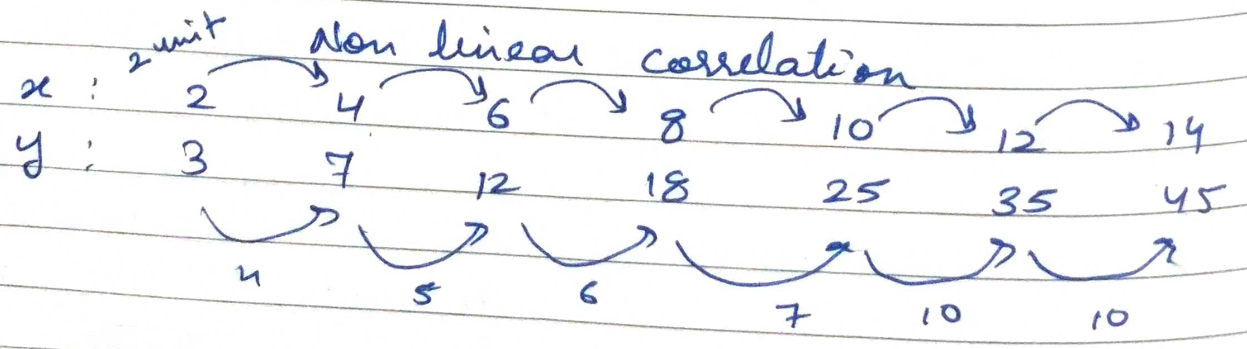 Non linear correlation
2 unit
x : 2 4 6 8 10 12 14
y : 3 7 12 18 25 35 45
4 5 6 7 10 10